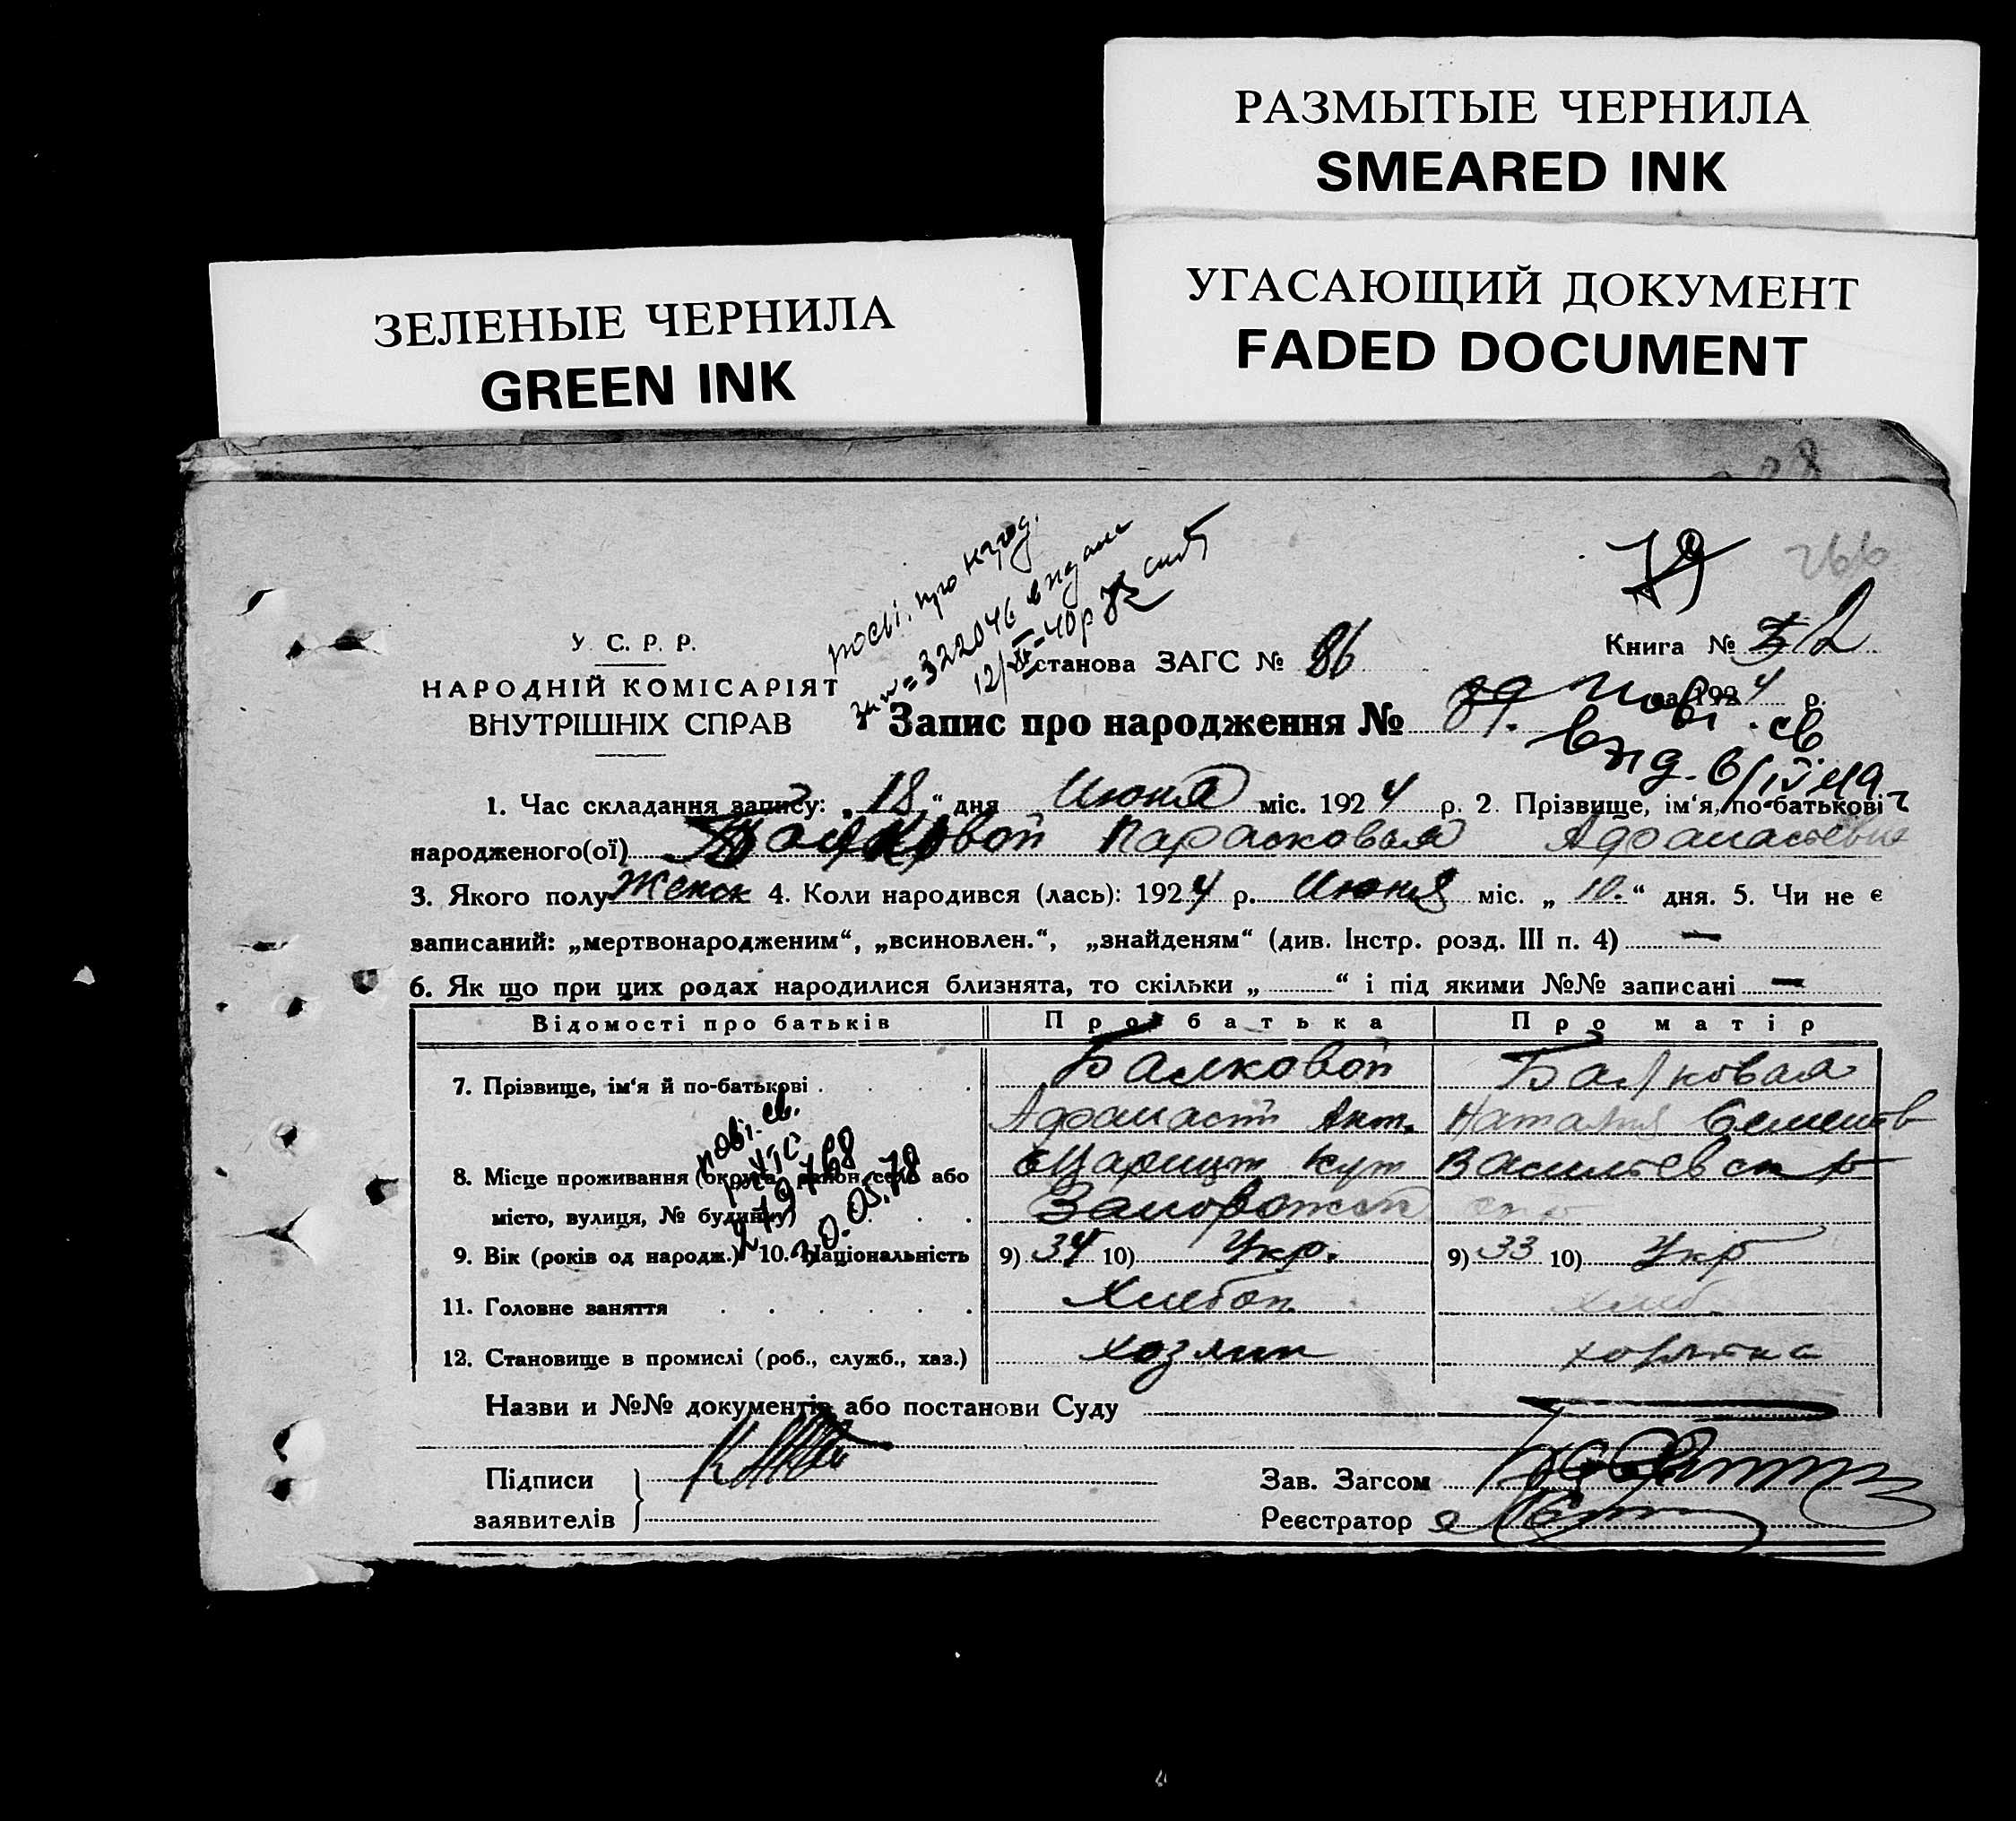 РАЗМЫТЫЕ ЧЕРНИЛА
SMEARED INK
УГАСАЮЩИЙ ДОКУМЕНТ
FADED DOCUMENT
ЗЕЛЕНЫЕ ЧЕРНИЛА
GREEN INK
266
У. С. Р. Р.
НАРОДНІЙ КОМІСАРІЯТ
ВНУТРІШНІХ СПРАВ
про народ.
322046
Установа ЗАГС № 86
Книга № 2
за 1924 р.
Запис про народження №
1. Час складання запису: „18“ дня Июня міс. 1924 р. 2. Прізвище, ім‘я, по-батькові
народженого(ої) Парасковья Афанасьевна
3. Якого полу Женск 4. Коли народився (лась): 1924 р. Июня міс. „10.“ дня. 5. Чи не є
записаний: „мертвонародженим“, „всиновлен.“, „знайденям“ (див. Інстр. розд. III п. 4) —
6. Як що при цих родах народилися близнята, то скільки „ “ і під якими №№ записані —
Відомості про батьків Про батька Про матір
7. Прізвище, ім‘я й по-батькові Балковой Балковая
Афанасий Ант. Наталия Семенов
8. Місце проживання (округа, район, село або Царицин Кут Васильевск р
місто, вулиця, № будинку) Запорожск
9. Вік (років од народж.) 10. Національність 9) 34 10) Укр. 9) 33 10) Укр
11. Головне заняття Хлебоп Хлеб.
12. Становище в промислі (роб., служб., хаз.) хозяин
Назви и №№ документів або постанови Суду
Підписи
заявителів
Зав. Загсом
Реєстратор